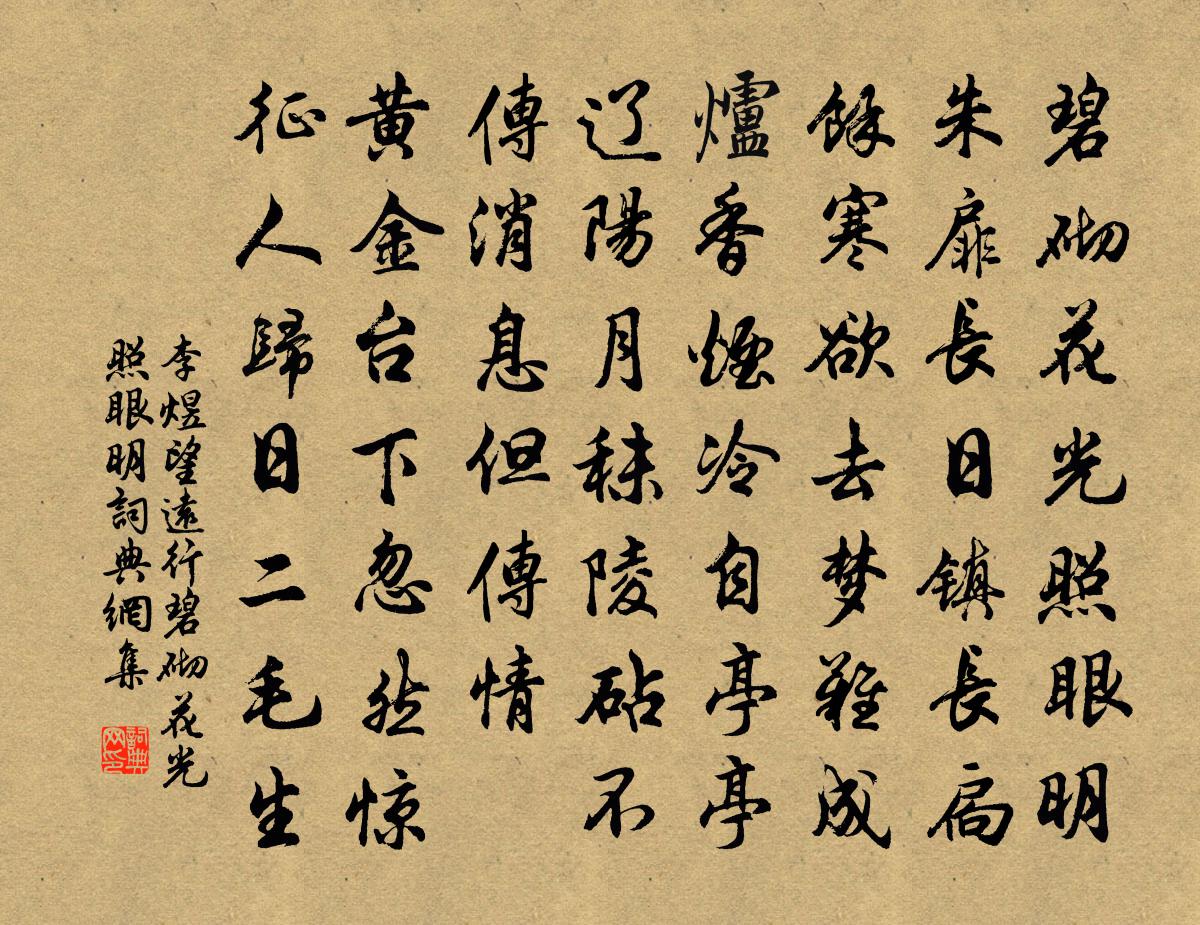 碧砌花光照眼明
朱扉長日鎮長扃
餘寒欲去梦難成
爐香煙冷自亭亭
辽陽月秣陵砧不
傳消息但傳情
黃金台下忽然惊
征人歸日二毛生
李煜望遠行碧砌花光
照眼明詞典網集
詞典
网印